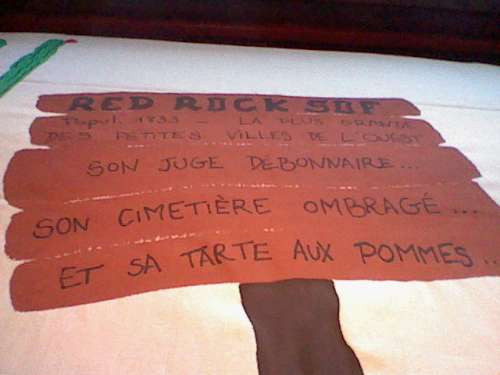 RED ROCK SOF
Popul. 1833 - LA PLUS GRANDE
DES PETITES VILLES DE L'OUEST
SON JUGE DÉBONNAIRE...
SON CIMETIÈRE OMBRAGÉ....
ET SA TARTE AUX POMMES...